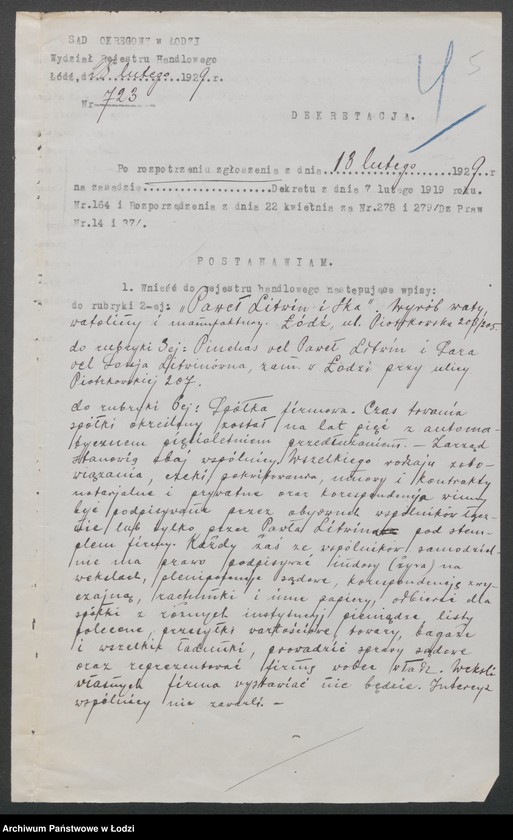 SĄD OKRĘGOWY w ŁODZI
Wydział Rejestru Handlowego
Łódź, d. 13 lutego 1929 r.
Nr 723
45
DEKRETACJA.
Po rozpotrzeniu zgłoszenia z dnia 13 lutego 1929 r
na zasadzie....................Dekretu z dnia 7 lutego 1919 roku.
Nr.164 i Rozporządzenia z dnia 22 kwietnia za Nr.278 i 279/Dz Praw
Nr.14 i 37/.
POSTANAWIAM.
1. Wnieść do rejestru handlowego następujące wpisy:
do rubryki 2-ej: „Paweł Litwin i Ska". Wyrób waty,
watoliny i manufaktury. Łódź, ul. Piotrkowska 203/205.
do rubryki 3ej: Pinchas vel Paweł Litwin i Sara
vel Sonja Litwinówna, zam. w Łodzi przy ulicy
Piotrkowskiej 207.
do rubryki 6ej: Spółka firmowa. Czas trwania
spółki określony został na lat pięć z automa-
tycznem pięcioletniem przedłużaniem. – Zarząd
stanowią obaj wspólnicy. Wszelkiego rodzaju zobo-
wiązania, czeki, pokwitowania, umowy i kontrakty
notarjalne i prywatne oraz korespondencja winny
być podpisywane przez obydwuch wspólników łącz-
nie lub tylko przez Pawła Litwina pod stem-
plem firmy. Każdy zaś ze wspólników samodziel-
nie ma prawo podpisywać indosy (żyra) na
wekslach, plenipotencje sądowe, korespondencję zwy-
czajną, rachunki i inne papiery, odbierać dla
spółki z różnych instytucyj pieniądze, listy
polecone, przesyłki wartościowe, towary, bagaże
i wszelkie ładunki, prowadzić sprawy sądowe
oraz reprezentować firmę wobec władz. Weksli
własnych firma wystawiać nie będzie. Intercyz
wspólnicy nie zawarli. –
Archiwum Państwowe w Łodzi